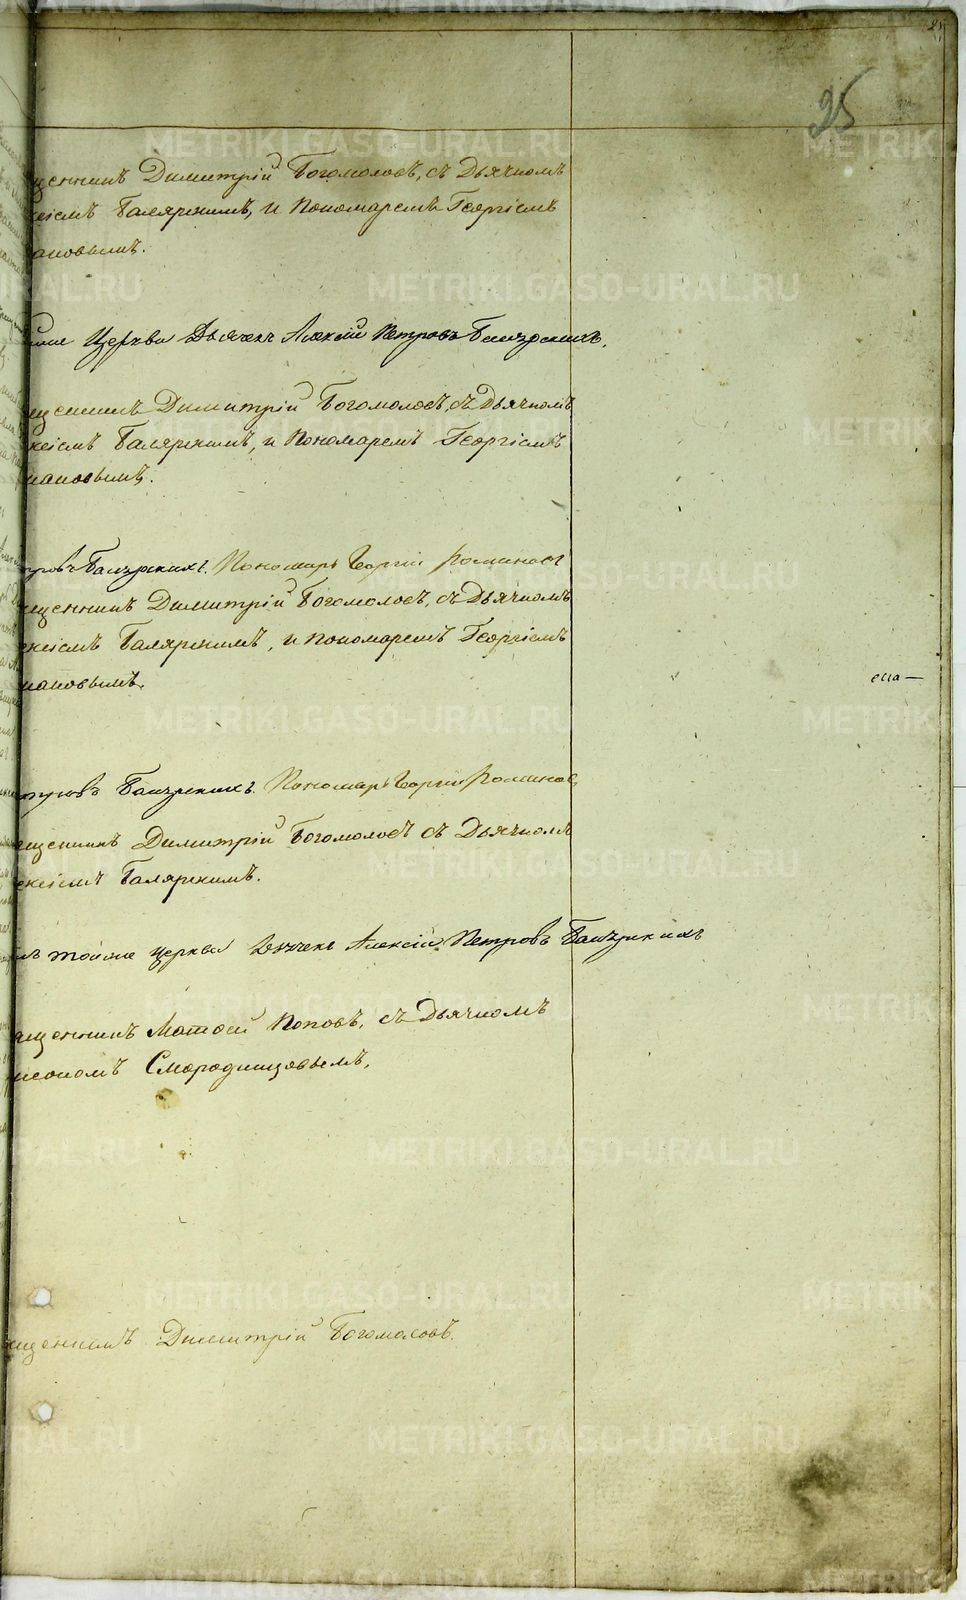 25
щенникъ Димитрій Богомоловъ, съ Дьячкомъ
ксіемъ Баляркимъ, и Пономаремъ Георгіемъ
ановымъ.
Церкви Дьячекъ Алексій Петровъ
щенникъ Димитрій Богомоловъ, съ Дьячкомъ
ксіемъ Баляркимъ, и Пономаремъ Георгіемъ
мановымъ.
тровъ Пономарь Георгій Романовъ
щенникъ Димитрій Богомоловъ, съ Дьячкомъ
ексіемъ Баляркимъ, и Пономаремъ Георгіемъ
мановымъ.
ена—
тровъ Пономарь Георгій Романов
ященникъ Димитрій Богомоловъ съ Дьячкомъ
ексіемъ Баляркимъ.
тойже церкви Дьячекъ Алексій Петровъ
ященникъ Матѳей Поповъ, съ Дьячкомъ
Смородинцовымъ.
ященникъ Димитрій Богомоловъ.
METRIKI.GASO-URAL.RU